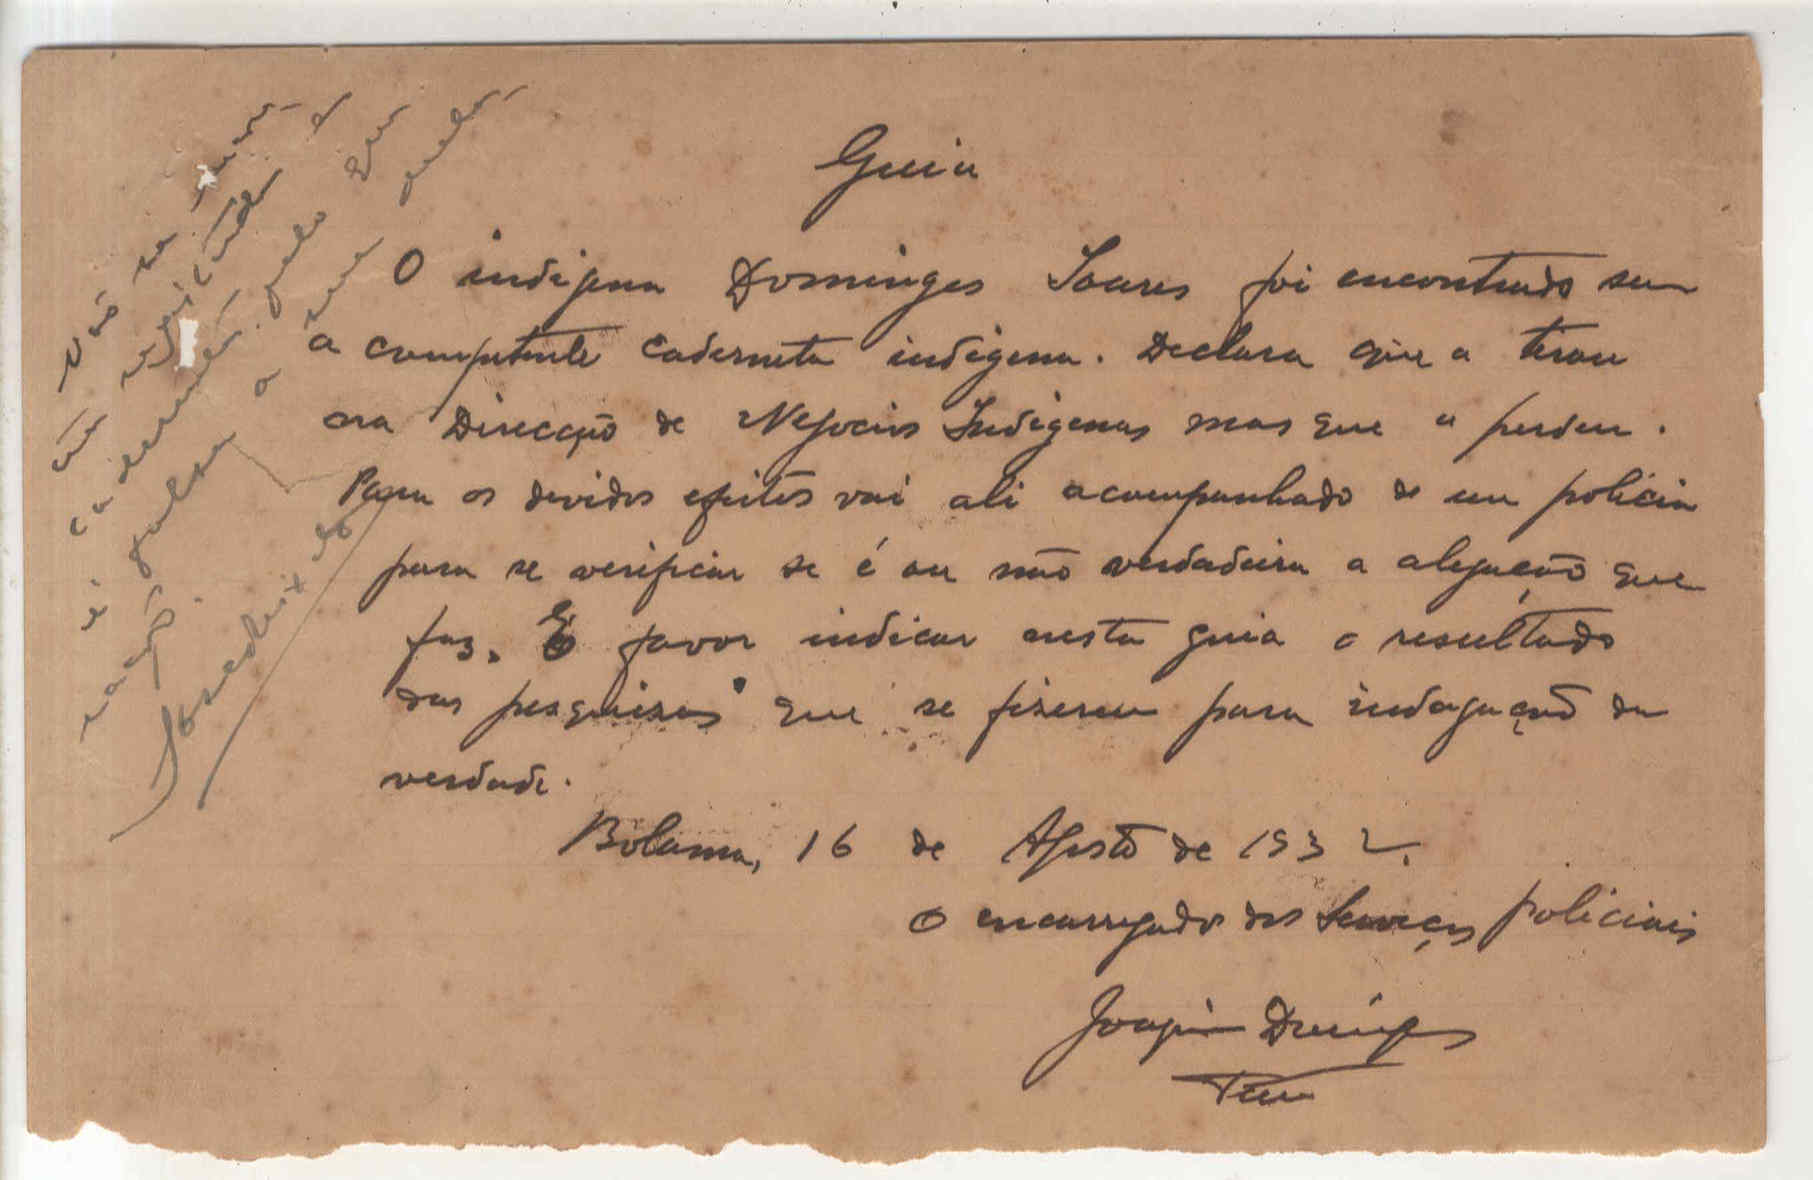 Guia
O indigena Domingos Soares foi encontrado sem
a competente caderneta indigena. Declara que a tirou
na Direcção de Negocios Indigenas mas que a perdeu.
Para os devidos efeitos vai ali acompanhado de um policia
para se verificar se é ou não verdadeira a alegação que
faz. É favor indicar nesta guia o resultado
das pesquisas que se fizerem para indagação da
verdade.
Bolama, 16 de Agosto de 1932.
O encarregado dos Serviços policiais
Joaquim
Não se
caderneta. pelo que